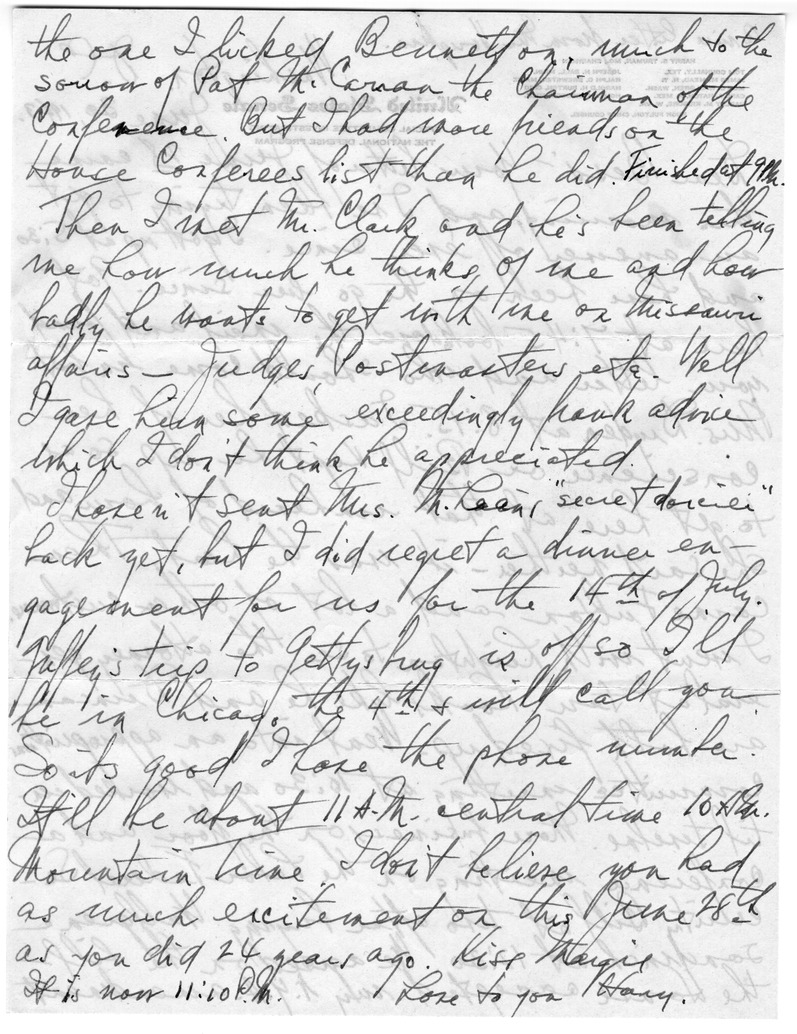 the one I licked Bennett on, much to the
sorrow of Pat McCarran the Chairman of the
Conference. But I had more friends on the
House Conferees list than he did. Finished at 9 P.M.
Then I met Mr. Clark and he's been telling
me how much he thinks of me and how
badly he wants to get with me on Missouri
affairs — Judges, Postmasters, etc. Well
I gave him some exceedingly frank advice
which I don't think he appreciated.
I haven't sent Mrs. McLean's "secret
back yet, but I did regret a dinner en-
gagement for us for the 14th of July.
Guffey's trip to Gettysburg is off so I'll
be in Chicago the 4th & will call you.
So its good I have the phone number.
It'll be about 11 A.M. central time 10 A.M.
Mountain Time. I don't believe you had
as much excitement on this June 28th
as you did 24 years ago. Kiss Margie
It is now 11:10 P.M. Love to you Harry.